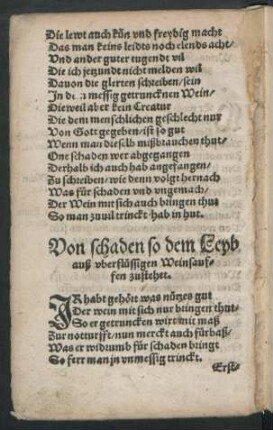 Die lewt auch kün vnd freydig macht
Das man keins leidts noch elends acht/
Vnd ander guter tugendt vil
Die ich jetzundt nicht melden wil
Dauon die glerten schreiben/sein
In dem messig getrunckenen Wein/
Dieweil aber kein Creatur
Die dem menschlichen geschlecht nur
Von Gott gegeben/ist so gut
Wenn man dieselb mißbrauchen thut/
One schaden wer abgegangen
Derhalb ich auch hab angefangen/
Zu schreiben/wie denn volgt hernach
Was für schaden vnd vngemach/
Der Wein mit sich auch bringen thut
So man zuuil trinckt hab in hut.
Von schaden so dem Leyb
auß vberflüssigen Weinsauf-
fen zustehet.
IR habt gehört was nützes gut
Der wein mit sich nur bringen thut/
So er getruncken wirt mit maß
Zur notturfft/nun merckt auch fürbaß/
Was er widrumb für schaden bringt
So ferr man jn vnmessig trinckt.
Erst-